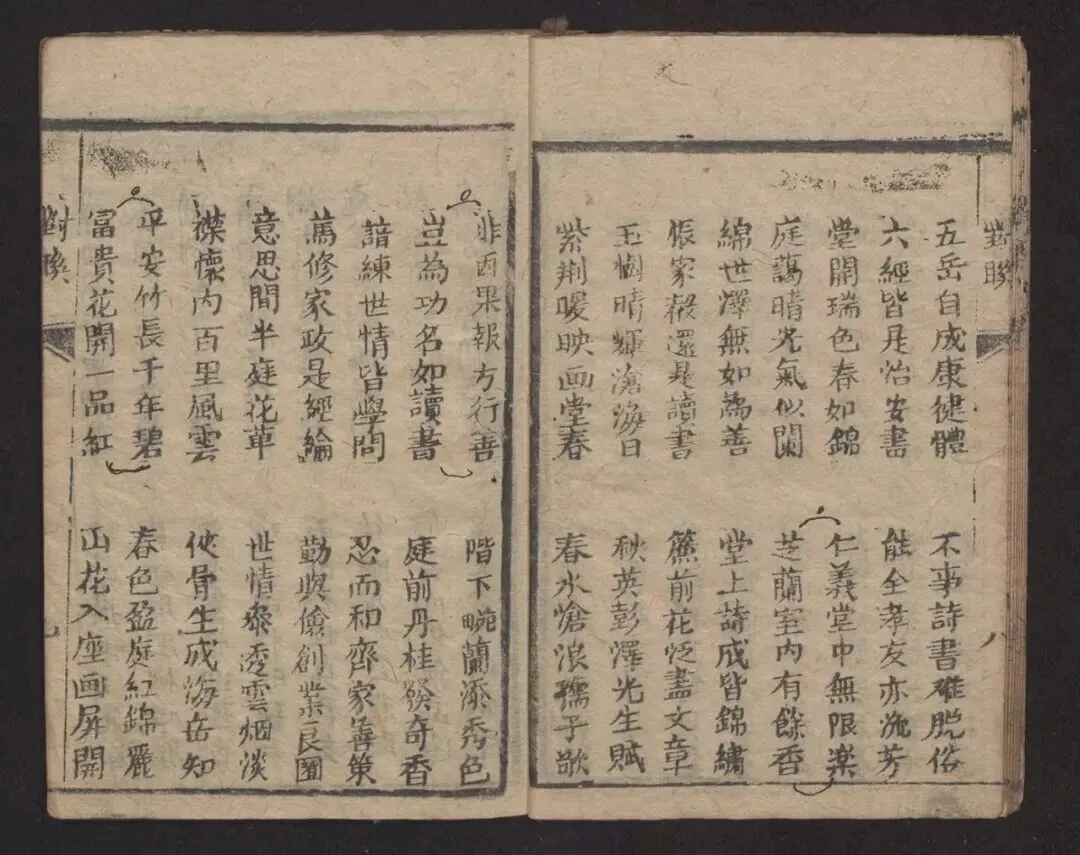 對聯
五岳自成康健體
六經皆是治安書
堂開瑞色春如錦
庭藹晴光氣似蘭
綿世澤無如為善
振家聲還是讀書
玉樹晴輝滄海日
紫荆暖映画堂春
不事詩書难脫俗
能全孝友亦流芳
仁義堂中無限楽
芝蘭室内有餘香
堂上詩成皆錦繡
簾前花泛盡文章
秋英彭澤光生賦
春水愴浪孺子歌
八
非因果報方行善
豈為功名如讀書
諳練世情皆學問
篤修家政是經綸
意思間半庭花草
襟懷内百里風雲
平安竹長千年碧
冨貴花開一品紅
階下畹蘭添秀色
庭前丹桂發奇香
忍而和齊家善策
勤與儉創業良圖
世情參透雲烟淡
俠骨生成海岳知
春色盈庭紅錦麗
山花入座画屏開
對聯